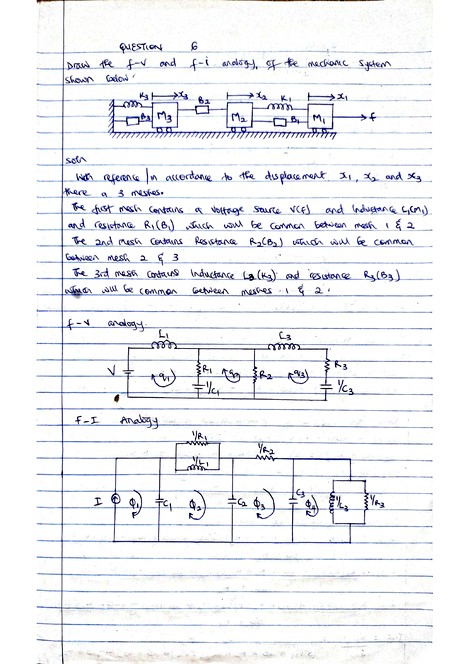 QUESTION 6
Draw the f-v and f-i analogy, of the mechanic system
shown below.
K3 x3 B2 x2 K1 x1
B3 M3 M2 B1 M1 f
soln
With reference / in accordance to the displacement x1, x2 and x3
there a 3 meshes.
The first mesh contains a voltage source V(f) and Inductance L1(M1)
and resistance R1(B1) which will be common between mesh 1 & 2
The 2nd mesh contains Resistance R2(B2) which will be common
between mesh 2 & 3
The 3rd mesh contains Inductance L3(K3) and resistance R3(B3)
which will be common between meshes 1 & 2.
f-v analogy
L1 L3
V q1 R1 q2 R2 q3 R3
1/C1 1/C3
f-I Analogy
1/R1 1/R2
1/L1
I Φ1 C1 Φ2 C2 Φ3 C3 Φ4 1/L3 1/R3